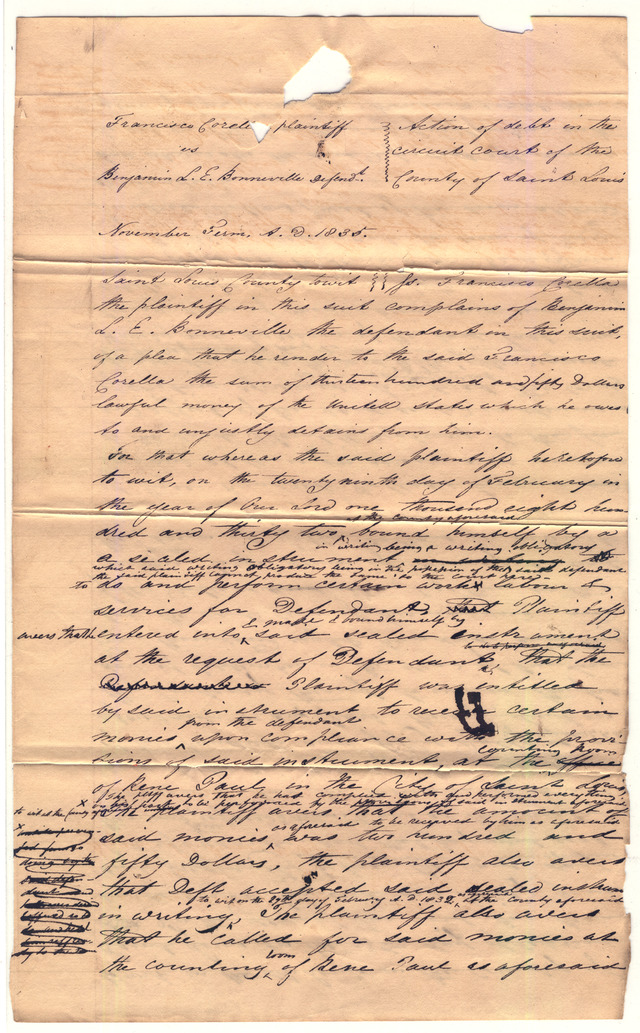 Francisco Corella plaintiff
vs
Benjamin L. E. Bonneville Defendt.
Action of debt in the
circuit court of the
County of Saint Louis
November Term, A. D. 1835.
Saint Louis County towit Ss. Francisco Corella
the plaintiff in this suit complains of Benjamin
L. E. Bonneville the defendant in this suit,
of a plea that he render to the said Francisco
Corella the sum of thirteen hundred and fifty Dollars
lawful money of the United States which he owes
to and unjustly detains from him.
For that whereas the said plaintiff heretofore
to wit, on the twenty ninth day of February in
the year of our Lord one thousand eight hun
at the County aforesaid
dred and thirty two bound himself by a
in writing being a writing obligatory
a sealed instrument
which said writing obligatory being in the possession of the said defendant
the said plaintiff cannot produce the same to the court here
to do and perform certain work labour &
services for Defendant, that Plaintiff
& made & bound himself by
avers that he entered into said sealed instrument
at the request of Defendant, that he
Plaintiff was entitled
by said instrument to receive certain
from the defendant
monies upon compliance with the provi
counting room
sions of said instrument, at the office
of Rene Paul, in the City of Saint Louis
to wit at the County
the plaintiff avers that the amount of
as aforesaid to be received by him as aforesaid
said monies was two hundred and
fifty Dollars, the plaintiff also avers
that Deft accepted said sealed instrum
to wit on the 29th day of February A. D. 1832, at the County aforesaid
in writing, The plaintiff also avers
that he called for said monies at
room
the counting of Rene Paul as aforesaid